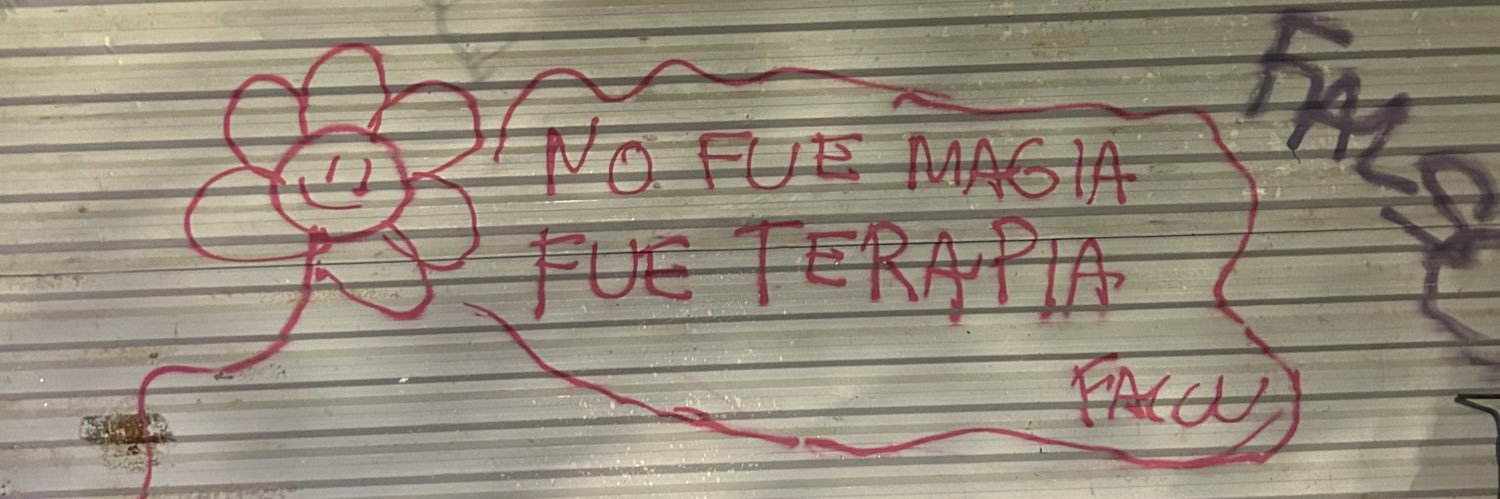 NO FUE MAGIA
FUE TERAPIA
FACU